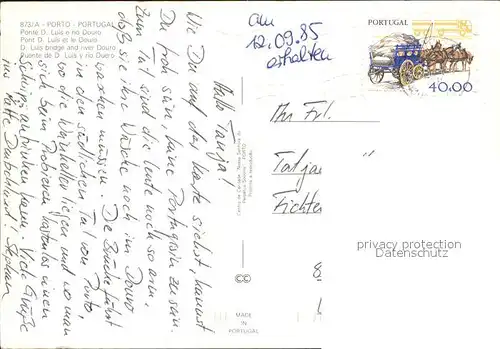 873/A - PORTO - PORTUGAL
Ponte D. Luis e rio Douro
Pont D. Luis et le Douro
D. Luis bridge and river Douro
Puente de D. Luis y rio Duero
Hallo Tanja!
Wie Du auf der Karte siehst, kannst
Du froh sein, keine Portugiesin zu sein.
Zum Teil sind die Leute noch so arm,
daß sie ihre Wäsche noch im Douro
waschen müssen. Die Brücke führt
in den südlichen Teil von Porto,
wo die Weinkeller liegen und wo man
sich beim Probieren kostenlos einen
Schwips antrinken kann. Viele Grüße
ins kalte Deutschland! Stephan
MADE
IN
PORTUGAL
am
12.09.85
erhalten
PORTUGAL
40.00
Ihr Frl.
Tatjan
Fichten
privacy protection
Datenschutz